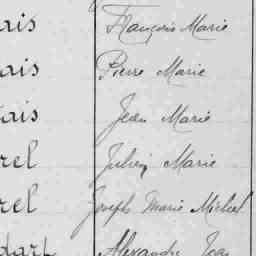 ais François Marie
ais Pierre Marie
ais Jean Marie
rel Julien Marie
rel Joseph Marie Michel
dart Alexandre Jean